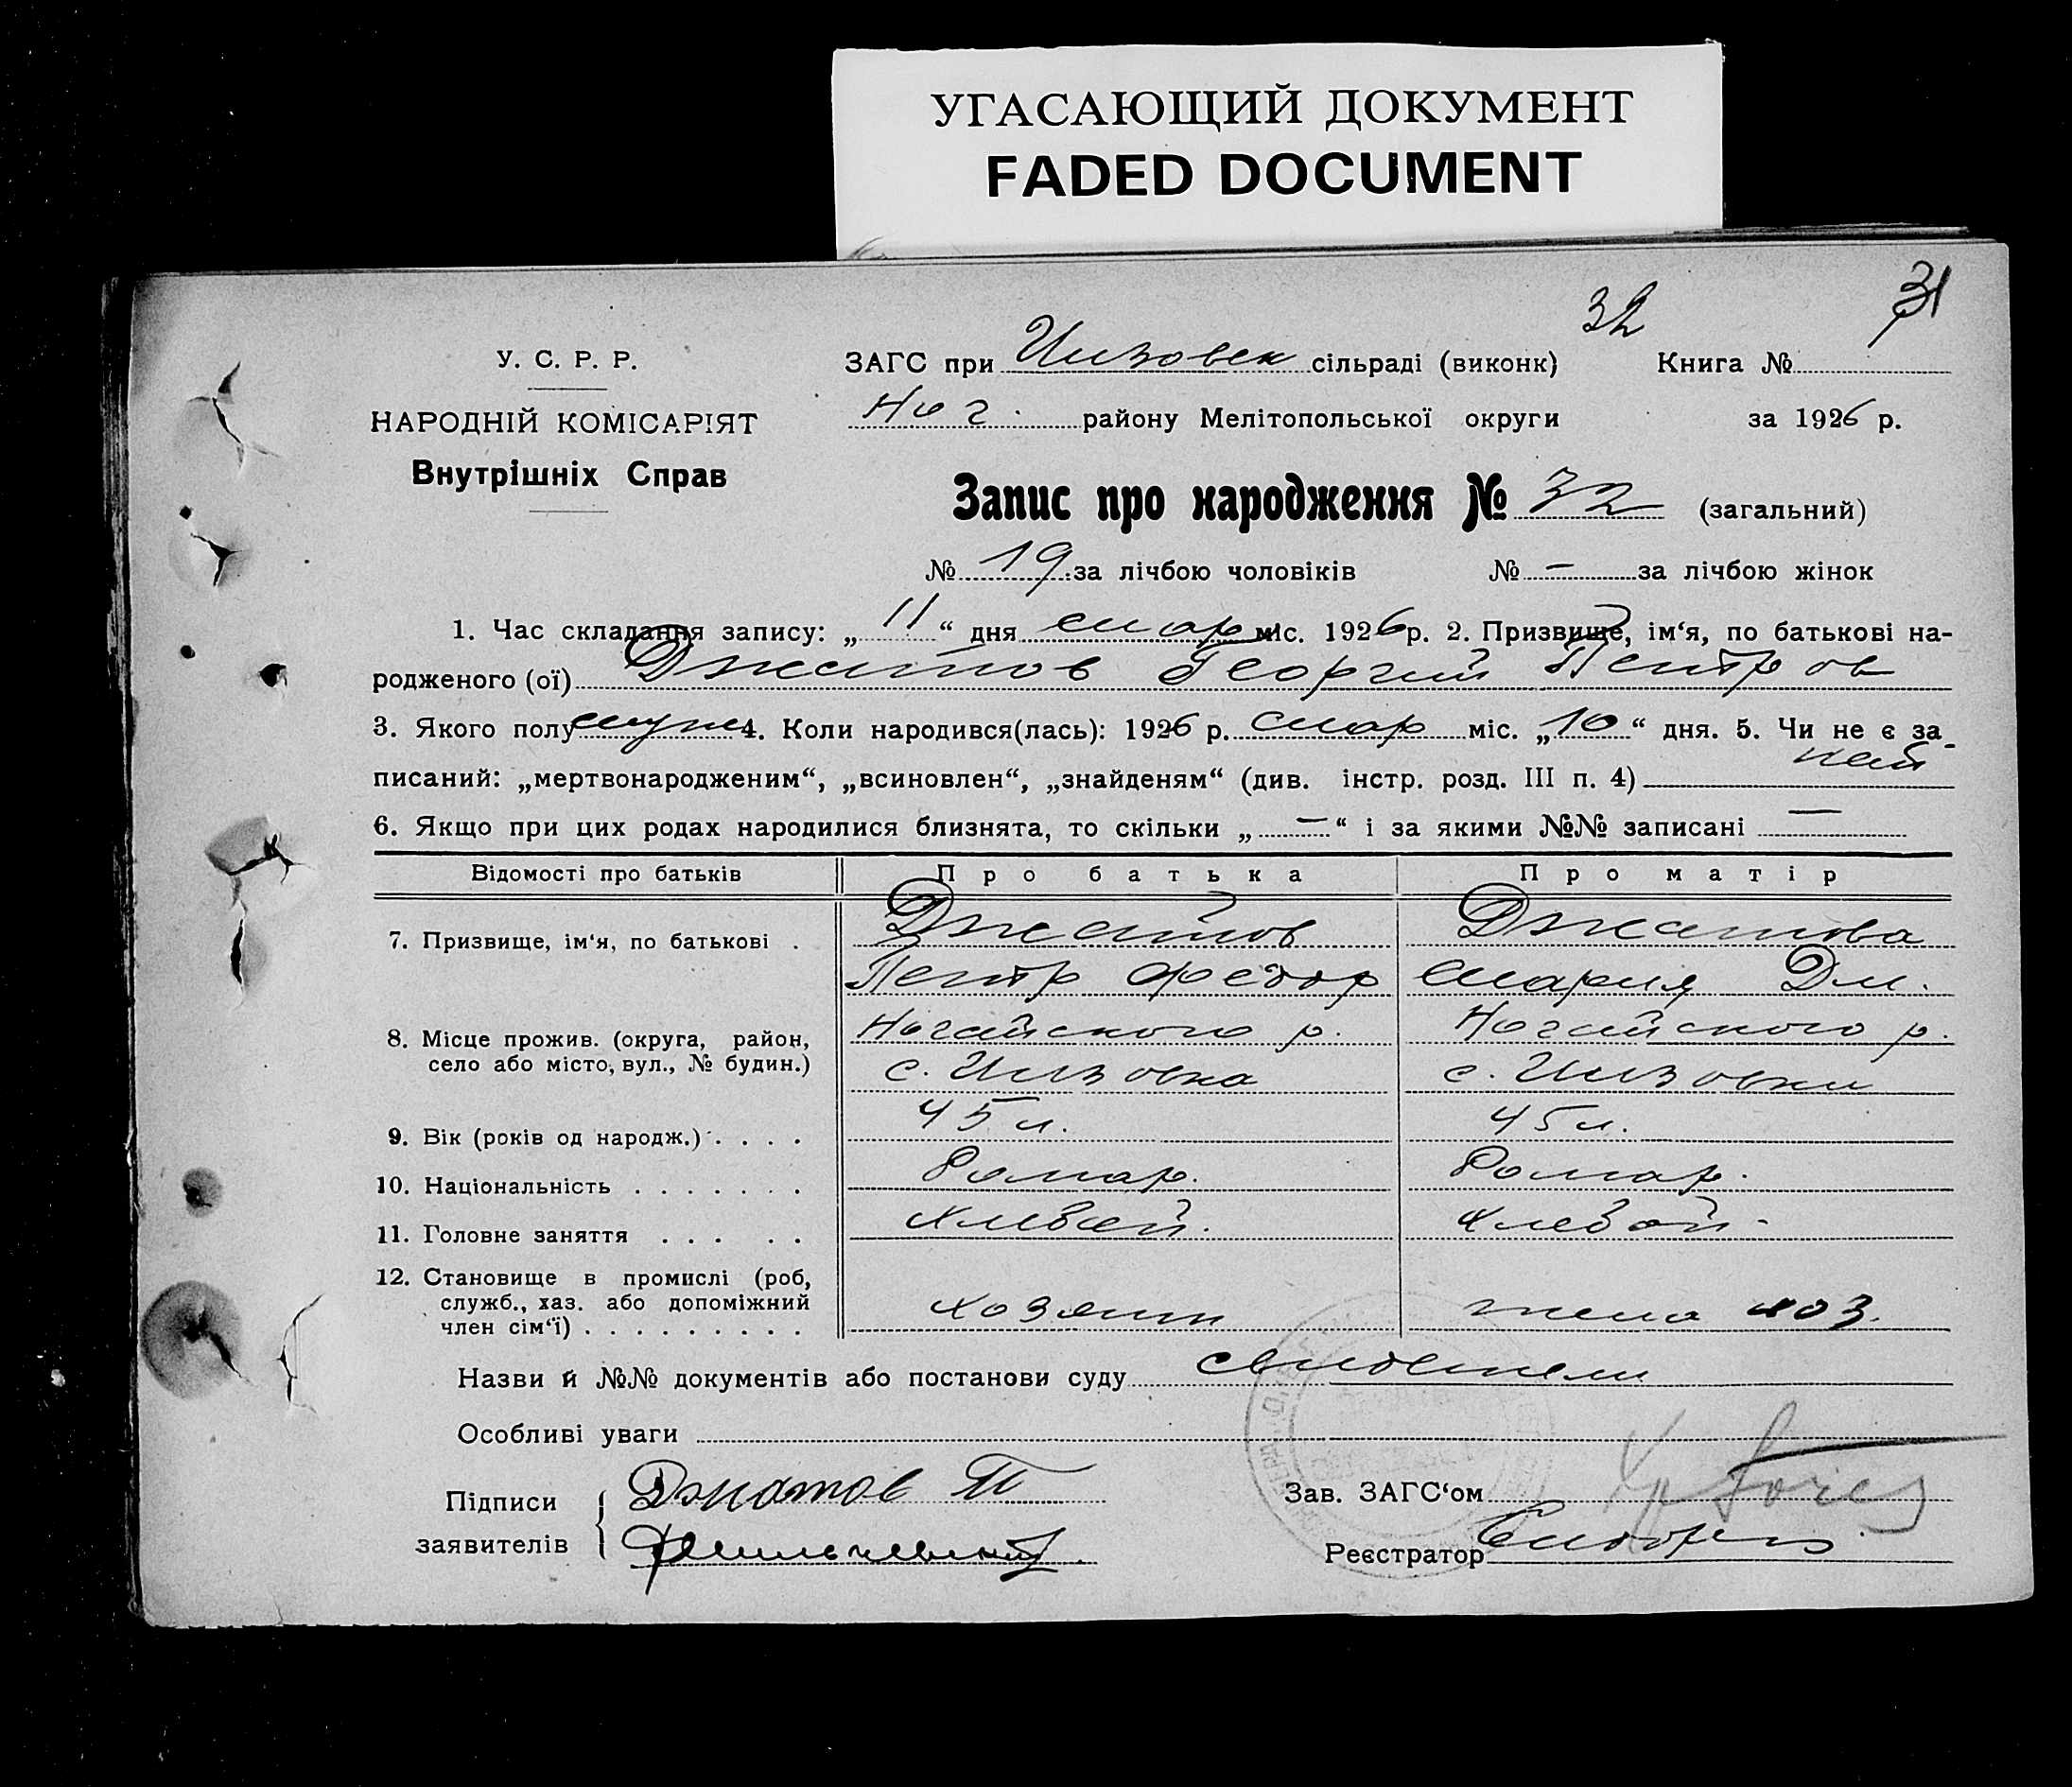 УГАСАЮЩИЙ ДОКУМЕНТ
FADED DOCUMENT
32 31
У. С. Р. Р.
НАРОДНІЙ КОМІСАРІЯТ
Внутрішніх Справ
ЗАГС при Инзовск сільраді (виконк) Книга №
Ног. району Мелітопольської округи за 1926 р.
Запис про народження № 32 (загальний)
№ 19 за лічбою чоловіків № — за лічбою жінок
1. Час складання запису: „11“ дня мар міс. 1926 р. 2. Призвище, ім‘я, по батькові на-
родженого (ої) Джатов Георгий Петров
3. Якого полу муж 4. Коли народився(лась): 1926 р. мар міс. „10“ дня. 5. Чи не є за-
писаний: „мертвонародженим“, „всиновлен“, „знайденям“ (див. інстр. розд. III п. 4)
6. Якщо при цих родах народилися близнята, то скільки „—“ і за якими №№ записані —
Відомості про батьків Про батька Про матір
7. Призвище, ім‘я, по батькові . Джатов Джатова
Петр Федор Мария Дм.
8. Місце прожив. (округа, район, Ногайского р. Ногайского р.
село або місто, вул., № будин.) с. Инзовка с. Инзовки
9. Вік (років од народж.) . . . . 45 л. 45 л.
10. Національність . . . . . . .
11. Головне заняття . . . . .
12. Становище в промислі (роб,
служб., хаз. або допоміжний хозяин жена хоз.
член сім‘ї) . . . . . . . . .
Назви й №№ документів або постанови суду свидетели
Особливі уваги
Підписи Джатов П
заявителів
Зав. ЗАГС‘ом
Реєстратор